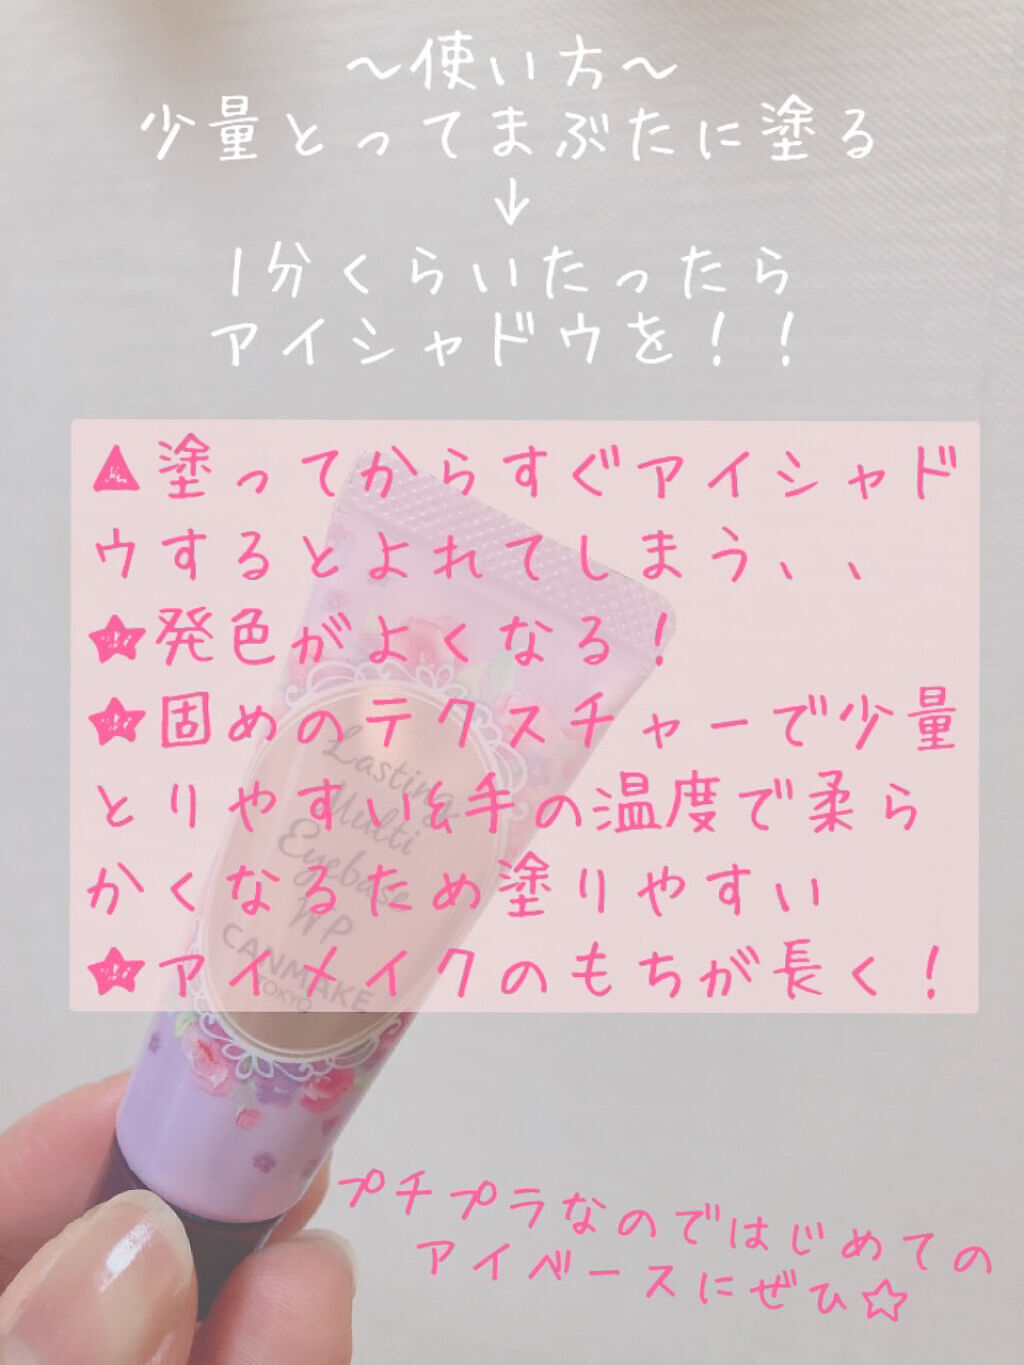 ～使い方～
少量とってまぶたに塗る
↓
1分くらいたったら
アイシャドウを！！
▲塗ってからすぐアイシャド
ウするとよれてしまう、、
★発色がよくなる！
★固めのテクスチャーで少量
とりやすい&手の温度で柔ら
かくなるため塗りやすい
★アイメイクのもちが長く！
Lasting
Multi
Eyebase
WP
CANMAKE
TOKYO
プチプラなのではじめての
アイベースにぜひ☆